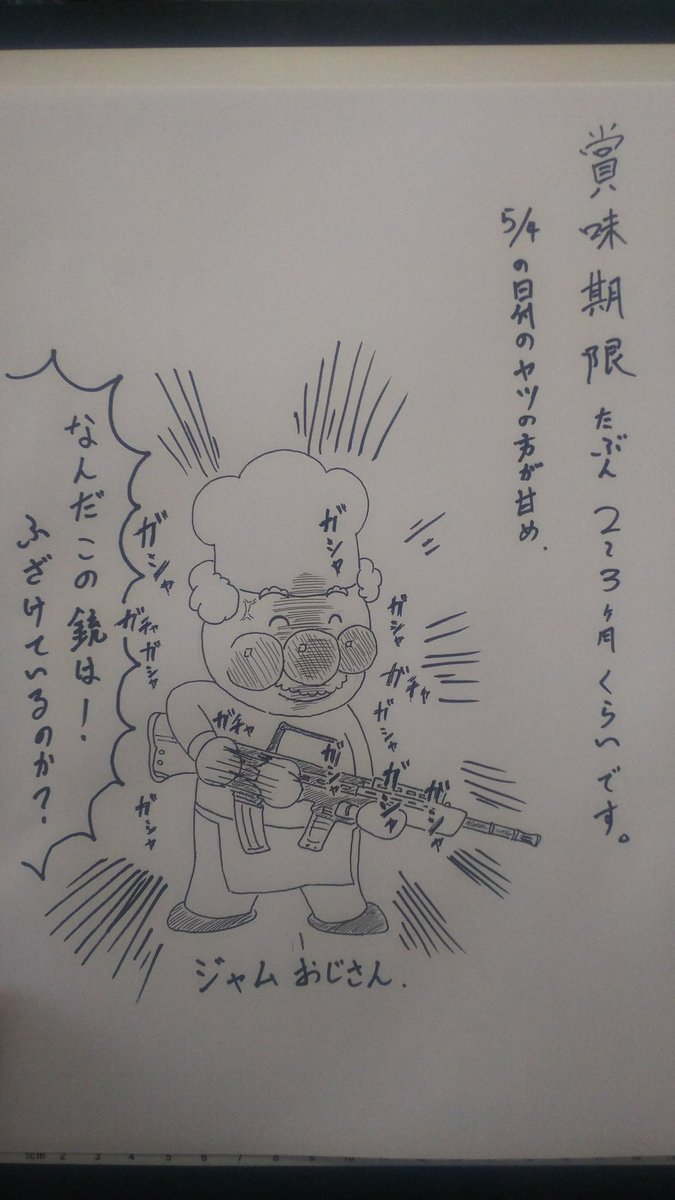 賞味期限 たぶん 2~3ヶ月くらいです。
5/4の日付のヤツの方が甘め.
なんだこの銃は!
ふざけているのか?
ガシャ
ガシャ
ガチャ
ガシャ
ガシャ
ガチャ
ガシャ
ガチャ
ガシャ
ガシャ
ガシャ
ガシャ
ジャムおじさん.
1cm 2 3 4 5 6 7 8 9 10 11 12 13